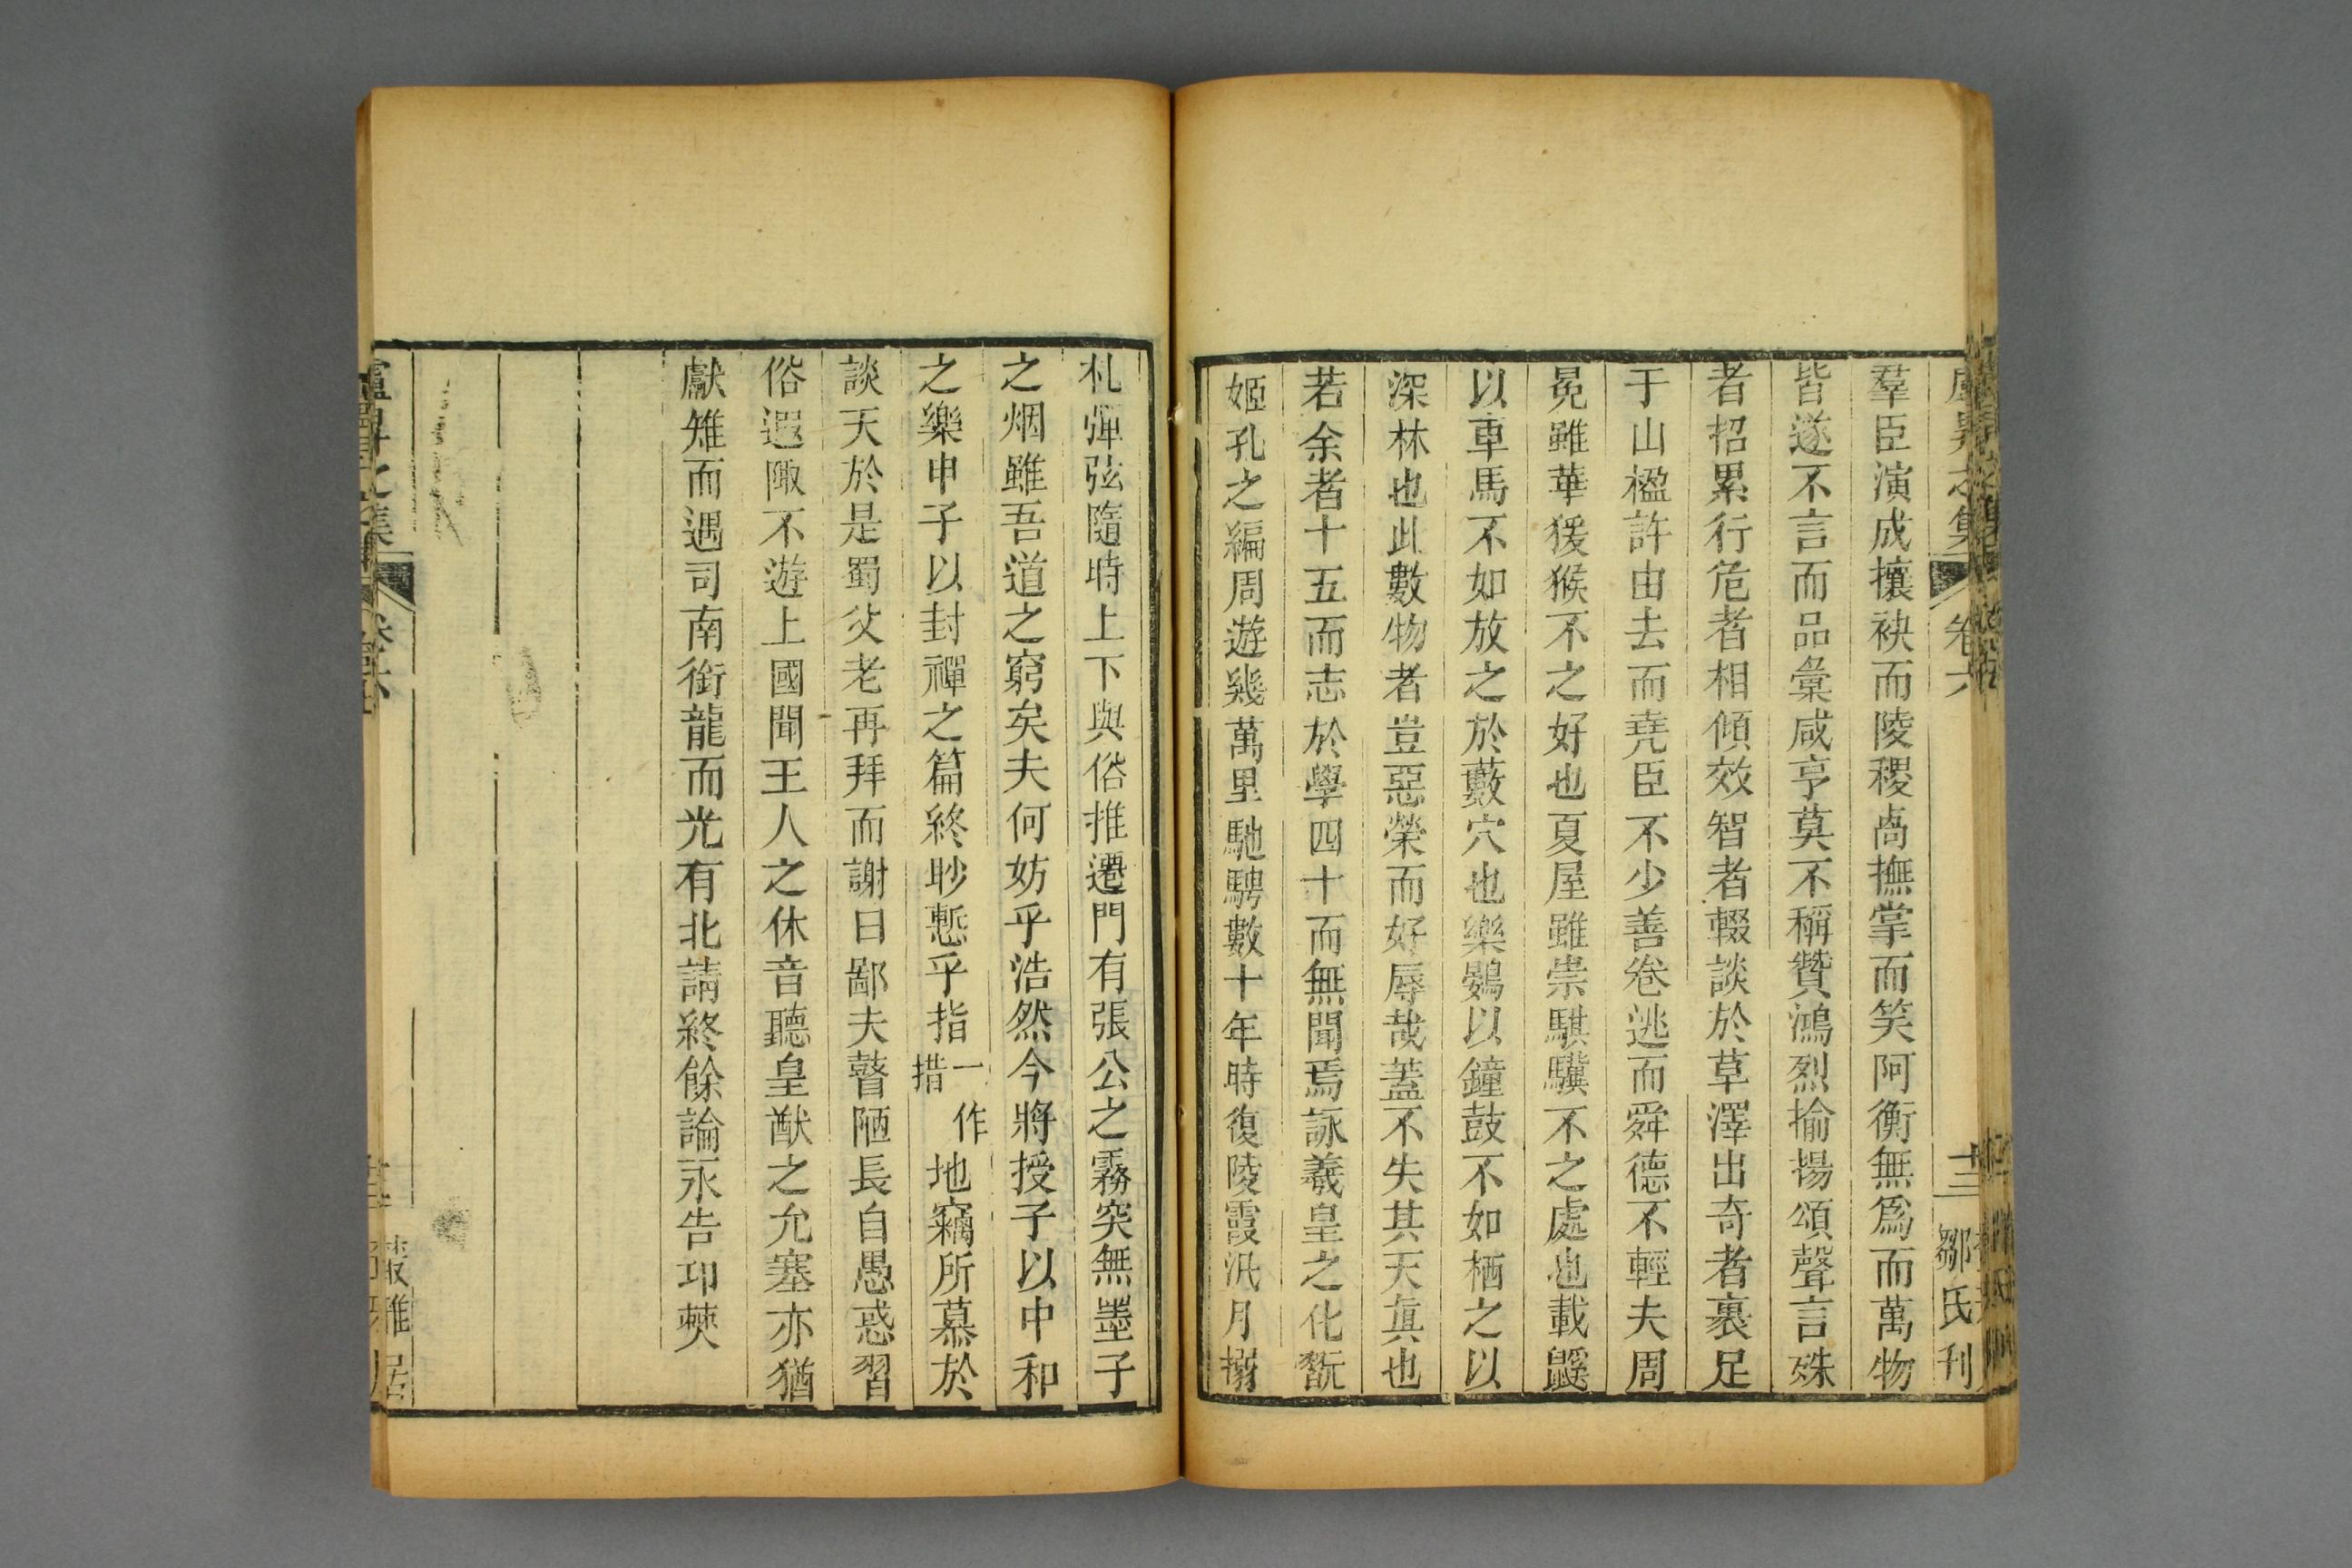 盧昇之集 卷六 十三 鄒氏刊
羣臣演成攘袂而陵稷卨撫掌而笑阿衡無爲而萬物
皆遂不言而品彙咸亨莫不稱贊鴻烈揄揚頌聲言殊
者招累行危者相傾效智者輟談於草澤出奇者裹足
于山楹許由去而堯臣不少善卷逃而舜德不輕夫周
冕雖華猨猴不之好也夏屋雖崇騏驥不之處也載鼷
以車馬不如放之於藪穴也樂鷃以鐘鼓不如栖之以
深林也此數物者豈惡榮而好辱哉蓋不失其天眞也
若余者十五而志於學四十而無聞焉詠羲皇之化翫
姬孔之編周遊幾萬里馳騁數十年時復陵霞汎月搦
札彈弦隨時上下與俗推遷門有張公之霧突無墨子
之烟雖吾道之窮矣夫何妨乎浩然今將授子以中和
之樂申子以封禪之篇終眇慙乎指一作措地竊所慕於
談天於是蜀父老再拜而謝曰鄙夫瞽陋長自愚惑習
俗遐陬不遊上國聞王人之休音聽皇猷之允塞亦猶
獻雉而遇司南銜龍而光有北請終餘論永告邛僰
盧昇之集 卷六 叢雅居